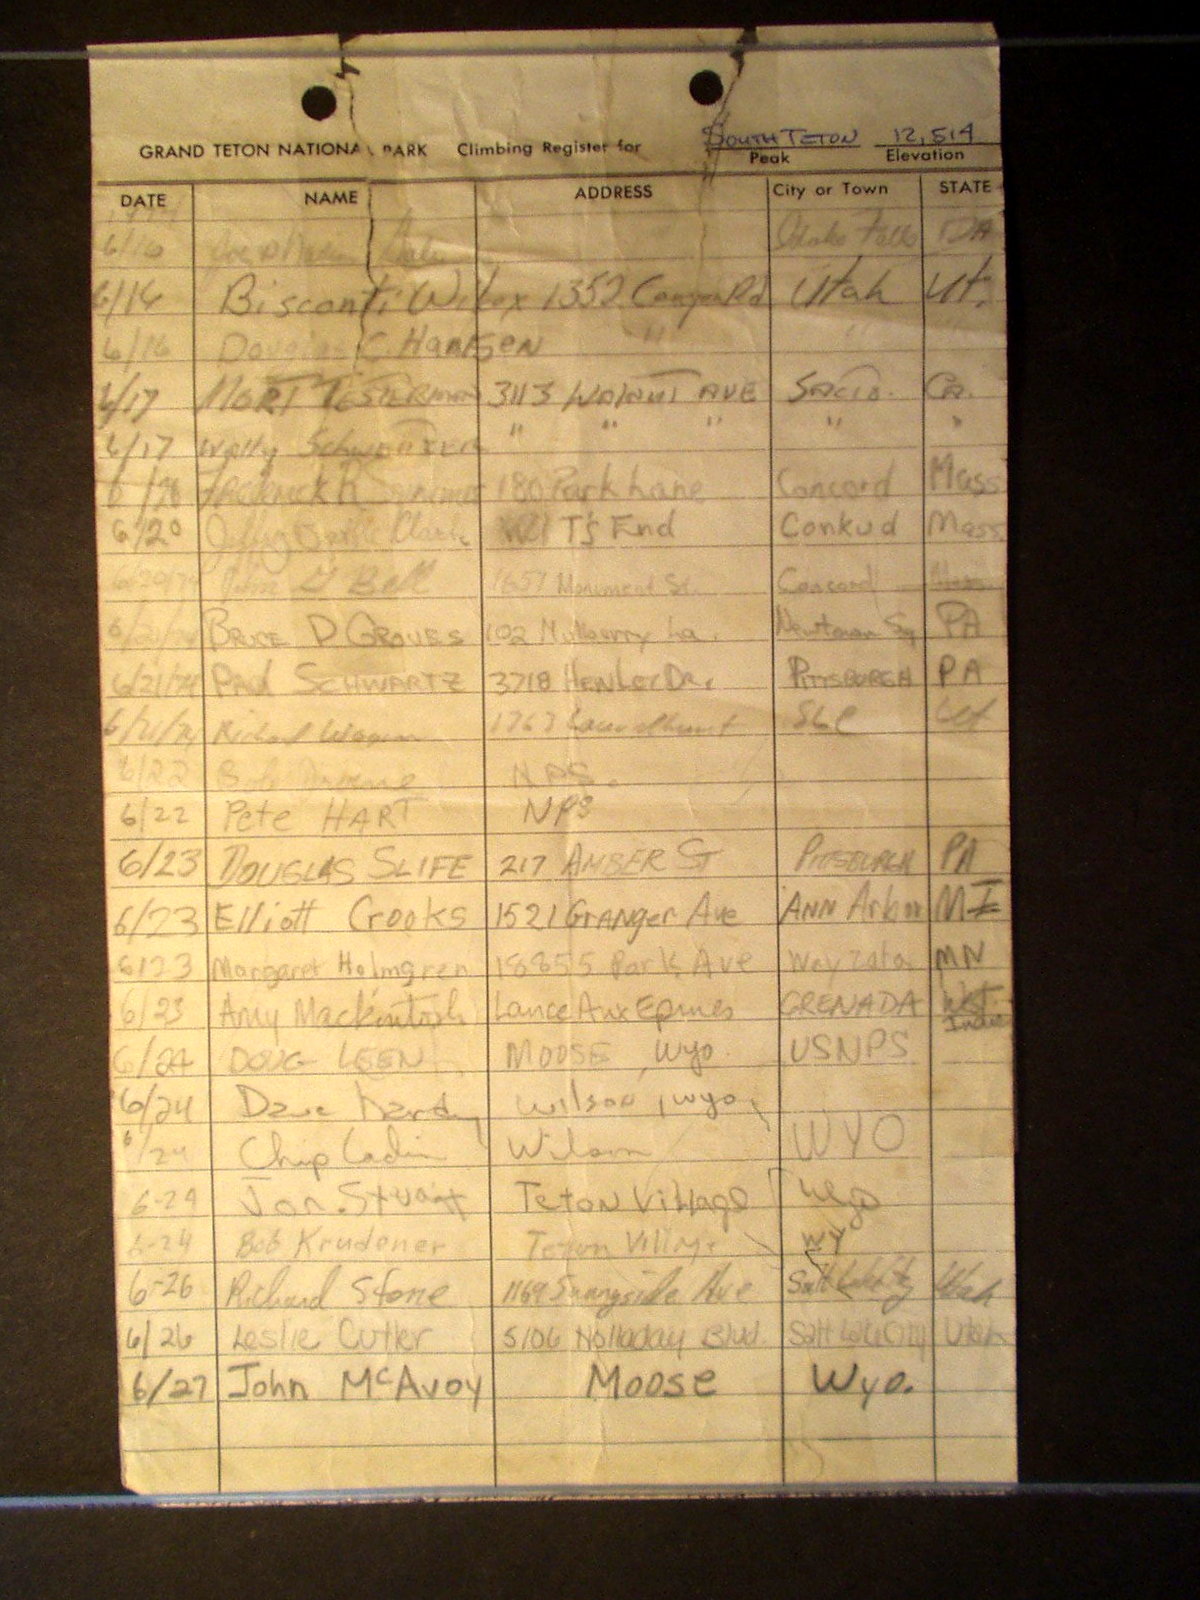 SOUTH TETON 12,514
GRAND TETON NATIONAL PARK Climbing Register for Peak Elevation
DATE NAME ADDRESS City or Town STATE
6/16 Idaho Falls IDA
6/16 Bisconti Wilcox 1352 Canyon Rd Utah Ut.
6/16 Douglas C. Hansen " " "
6/17 MORT TESTERMAN 3113 WALNUT AVE SACTO. CA.
6/17 Wally " " " " "
180 Park Lane Concord Mass
6/20 Clark T's End Conkud Mass
6/20/74 John G Bell Monument St. Concord
BRUCE D GROVES 102 Mulberry La. Newtown Sq PA
6/21/74 Paul SCHWARTZ 3718 HENLEY DR. PITTSBURGH PA
6/21/74 Richard 1767 SLC Ut
6/22 Bob NPS.
6/22 Pete HART NPS
6/23 DOUGLAS SLIFE 217 AMBER ST PITTSBURGH PA
6/23 Elliott Crooks 1521 GRANGER Ave ANN Arbor MI
6/23 Margaret Holmgren 18855 Park Ave Wayzata MN
6/23 Amy Mackintosh Lance Aux Epines GRENADA Indie
6/24 DOUG LEEN MOOSE, Wyo. USNPS
6/24 Dave Hardy Wilson, Wyo,
6/24 Chip Wilson WYO
6-24 Jon. Stuart Teton Village Wyo
6-24 Bob Krudener Teton Village WY
6-26 Richard Stone 1169 Sunnyside Ave Salt Lake City Utah
6/26 Leslie Cutler 5106 Holladay Blvd. Salt Lake City Utah
6/27 John McAvoy Moose Wyo.